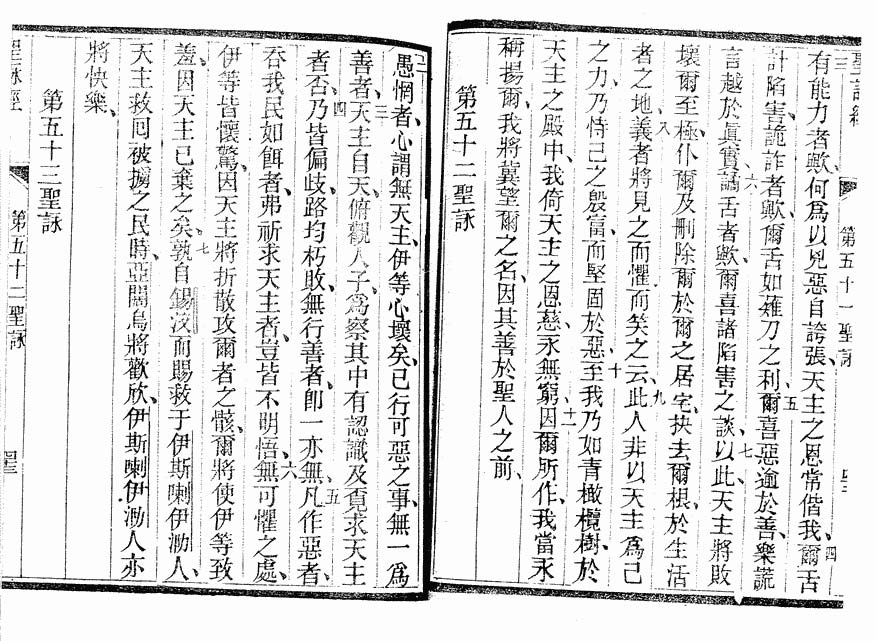 聖詠經 第五十一聖詠
三 有能力者歟、何爲以兇惡自誇張、天主之恩常偕我、四爾舌
計陷害、詭詐者歟、爾舌如薙刀之利、五爾喜惡逾於善、樂謊
言越於眞實、六譎舌者歟、爾喜諸陷害之談、七以此、天主將敗
壞爾至極、仆爾及刪除爾於爾之居宅、抉去爾根、於生活
者之地、八義者將見之而懼、而笑之云、九此人非以天主爲己
之力、乃恃己之殷富、而堅固於惡、十至我乃如青橄欖樹、於
天主之殿中、我倚天主之恩慈、永無窮、十一因爾所作、我當永
稱揚爾、我將冀望爾之名、因其善於聖人之前、
第五十二聖詠
二 愚惘者、心謂無天主、伊等心壞矣、已行可惡之事、無一爲
善者、三天主自天、俯觀人子、爲察其中有認識及覓求天主
者否、四乃皆偏歧路、均朽敗、無行善者、卽一亦無、五凡作惡者、
吞我民如餌者、弗祈求天主者、豈皆不明悟、六無可懼之處、
伊等皆懷驚、因天主將折散攻爾者之骸、爾將使伊等致
羞、因天主已棄之矣、七孰自錫汶而賜救于伊斯喇伊泐人、
天主救囘被擄之民時、亞闊烏將歡欣、伊斯喇伊泐人亦
將快樂、
第五十三聖詠
聖詠經 第五十二聖詠